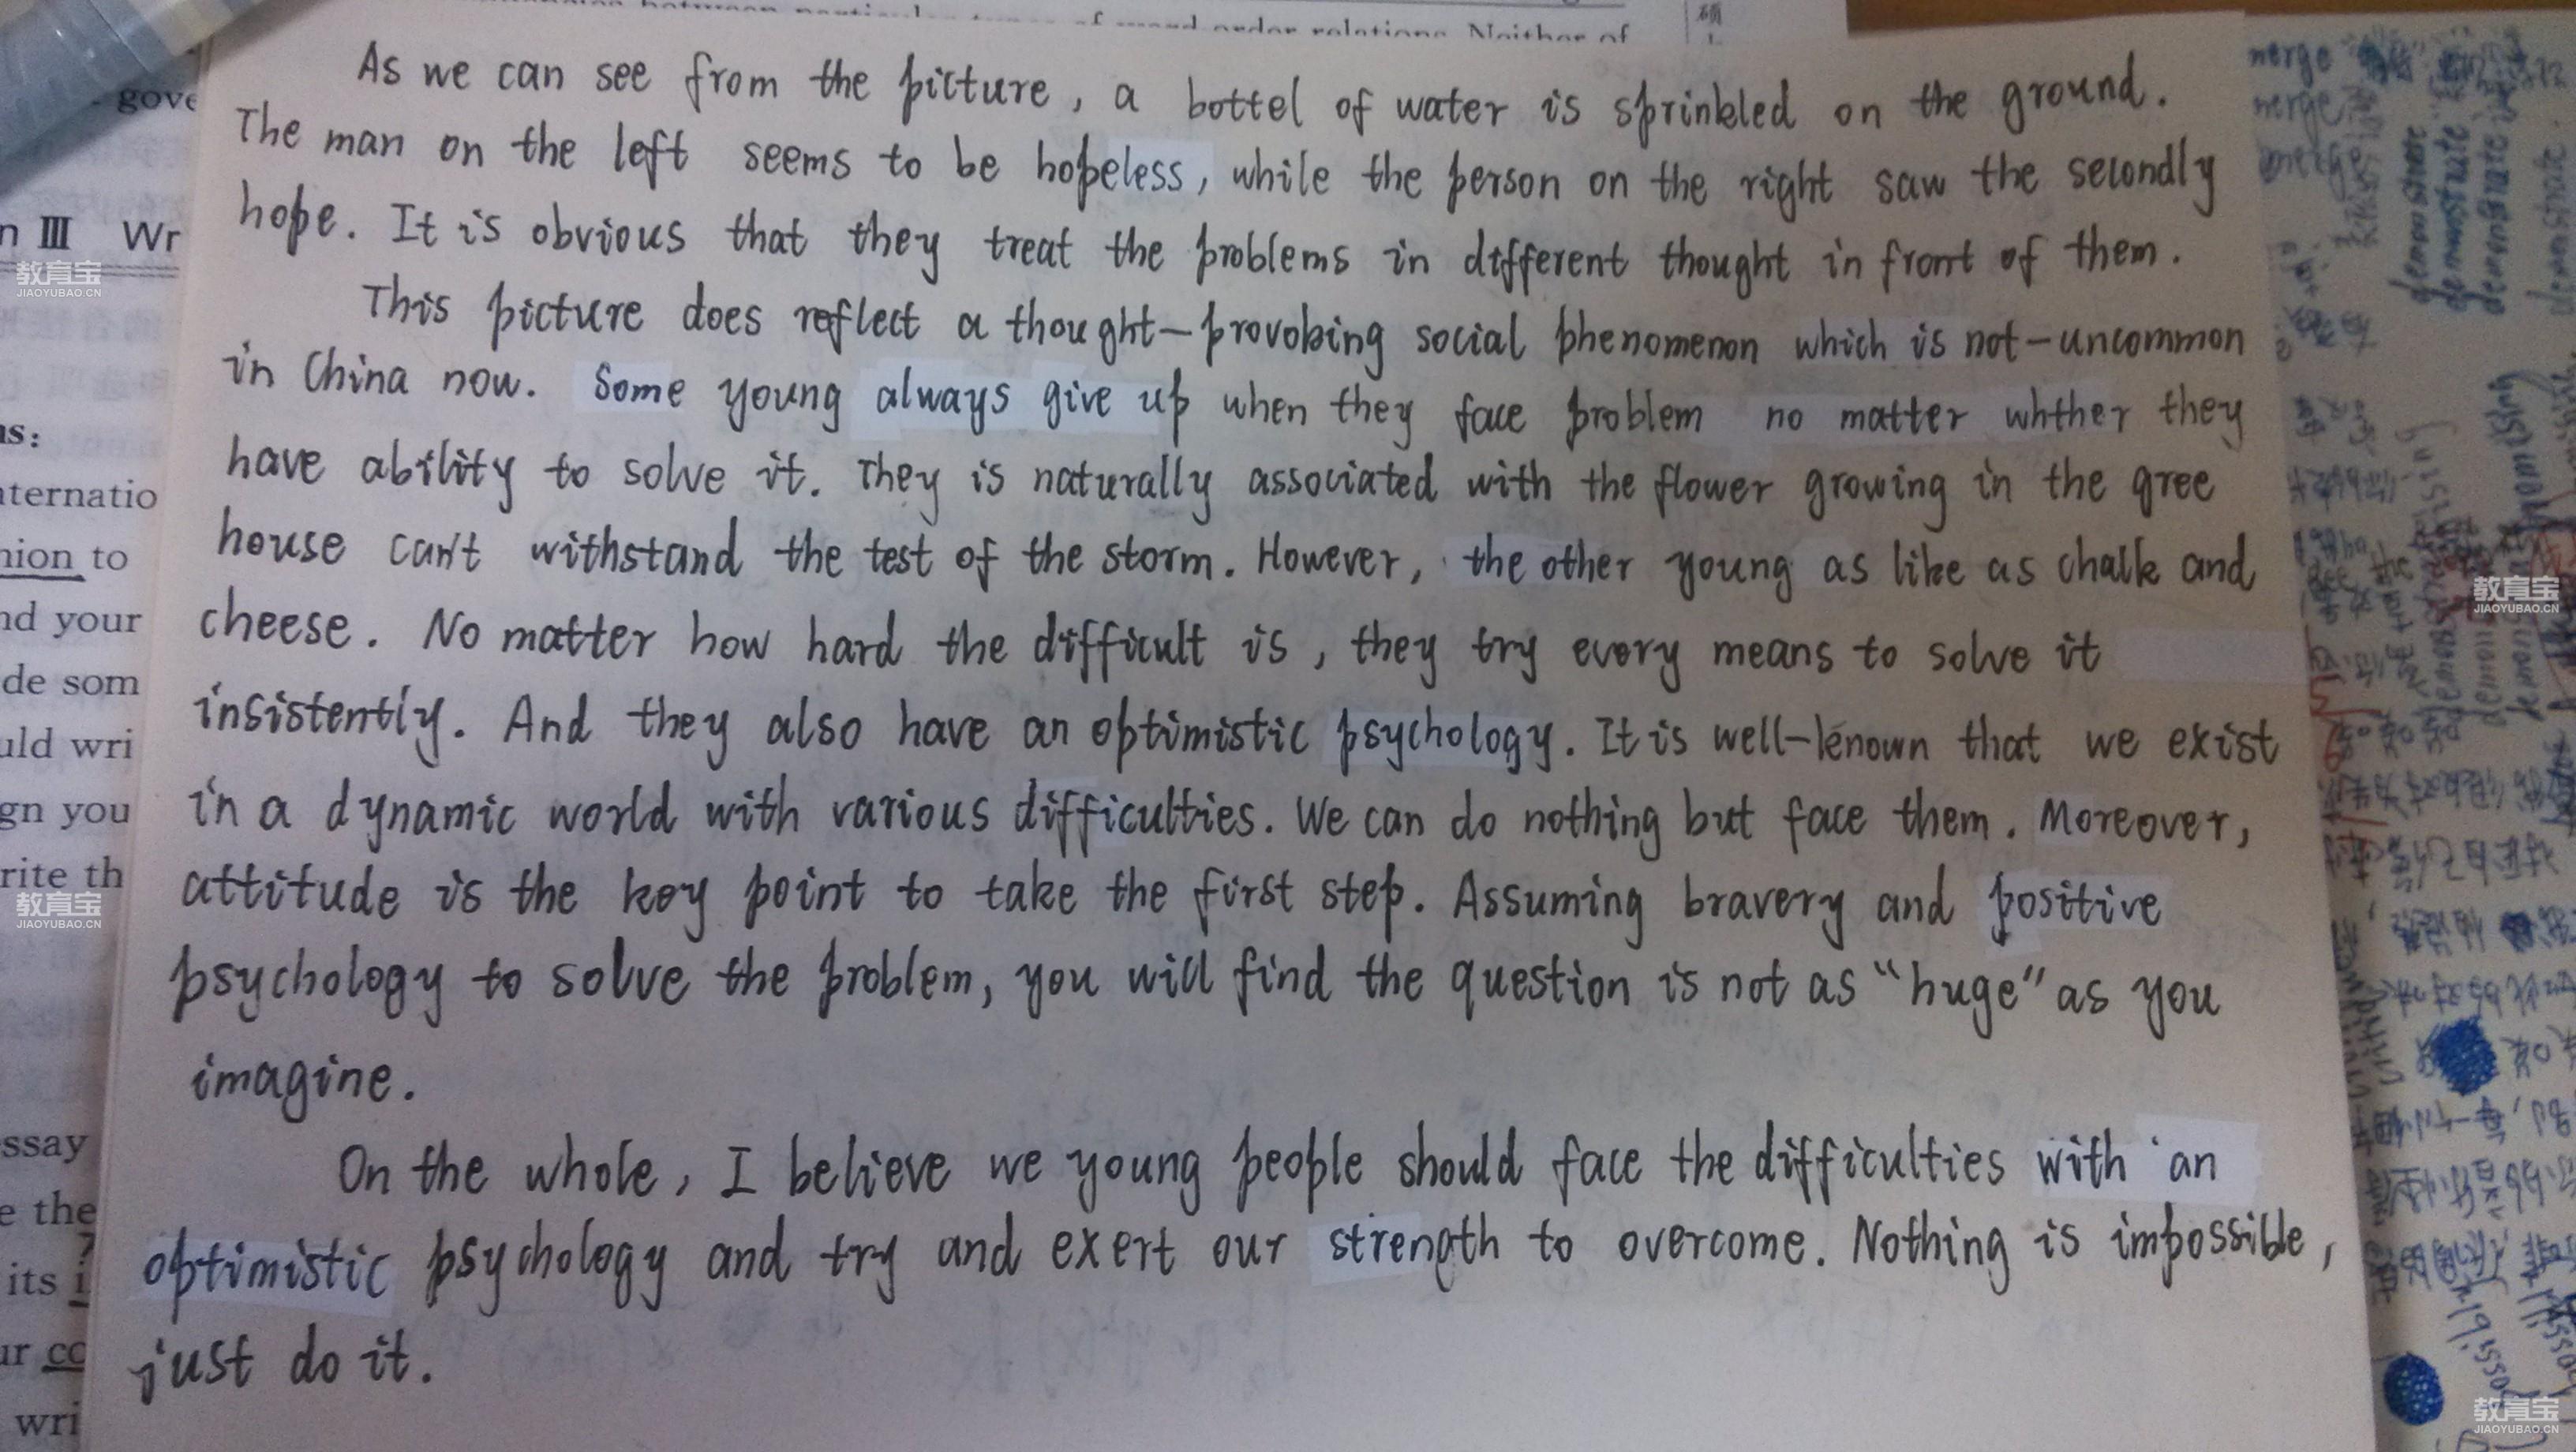 As we can see from the picture, a bottel of water is sprinkled on the ground.
The man on the left seems to be hopeless, while the person on the right saw the secondly
hope. It is obvious that they treat the problems in different thought in front of them.
This picture does reflect a thought-provoking social phenomenon which is not-uncommon
in China now. Some young always give up when they face problem no matter whther they
have ability to solve it. They is naturally associated with the flower growing in the gree
house can't withstand the test of the storm. However, the other young as like as chalk and
cheese. No matter how hard the difficult is, they try every means to solve it
insistently. And they also have an optimistic psychology. It is well-known that we exist
in a dynamic world with various difficulties. We can do nothing but face them. Moreover,
attitude is the key point to take the first step. Assuming bravery and positive
psychology to solve the problem, you will find the question is not as "huge" as you
imagine.
On the whole, I believe we young people should face the difficulties with an
optimistic psychology and try and exert our strength to overcome. Nothing is impossible,
just do it.
order relations. Neither of
gove
n III Wr
ns:
nternatio
nion to
nd your
de som
uld wri
gn you
rite th
ssay
e the
its i
ur co
wri
merge
merge
merge
demonstrate
demonstrate
教育宝
JIAOYUBAO.CN
教育宝
JIAOYUBAO.CN
教育宝
JIAOYUBAO.CN
教育宝
JIAOYUBAO.CN